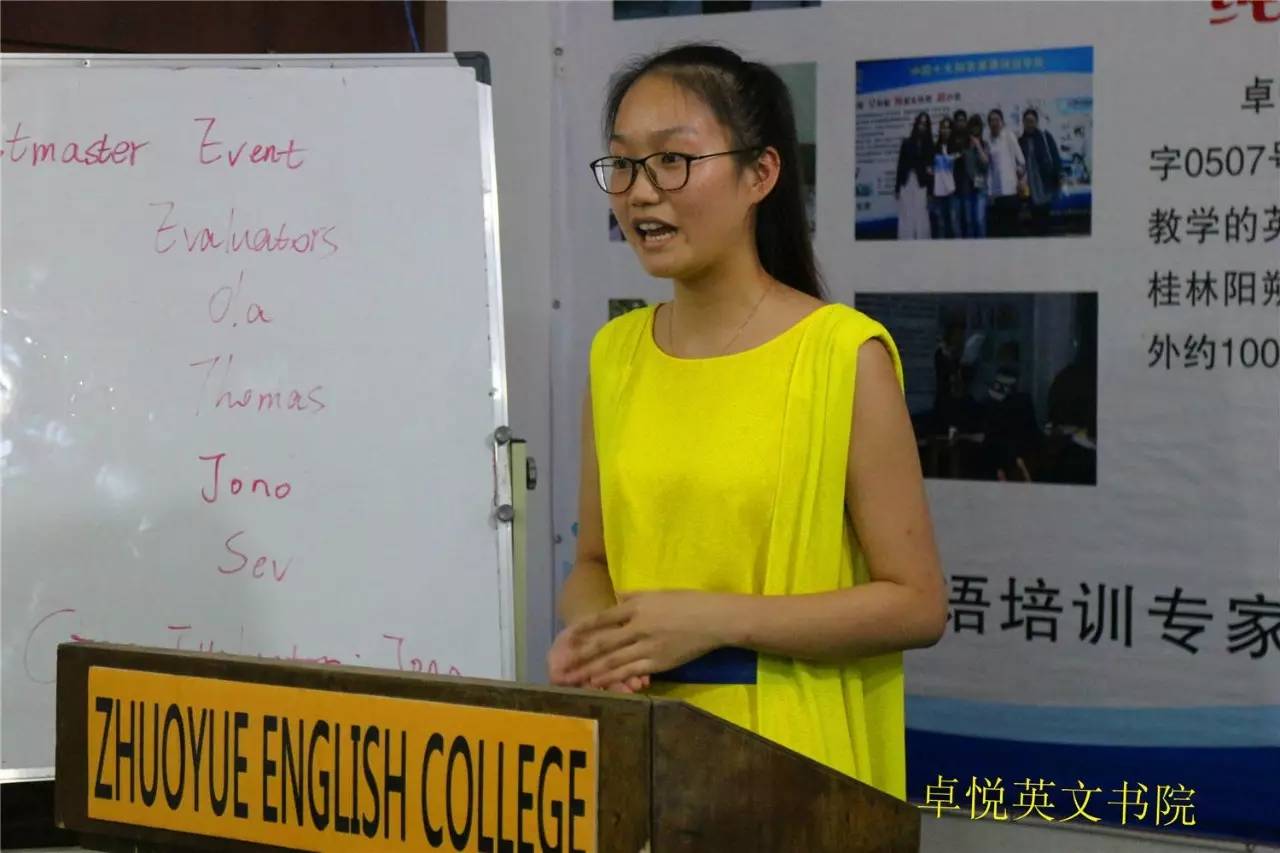 tmaster Event
Evaluators
Thomas
Jono
Sev
Jono
ZHUOYUE ENGLISH COLLEGE
卓
字0507号
教学的英
桂林阳朔
外约100
语培训专家
卓悦英文书院